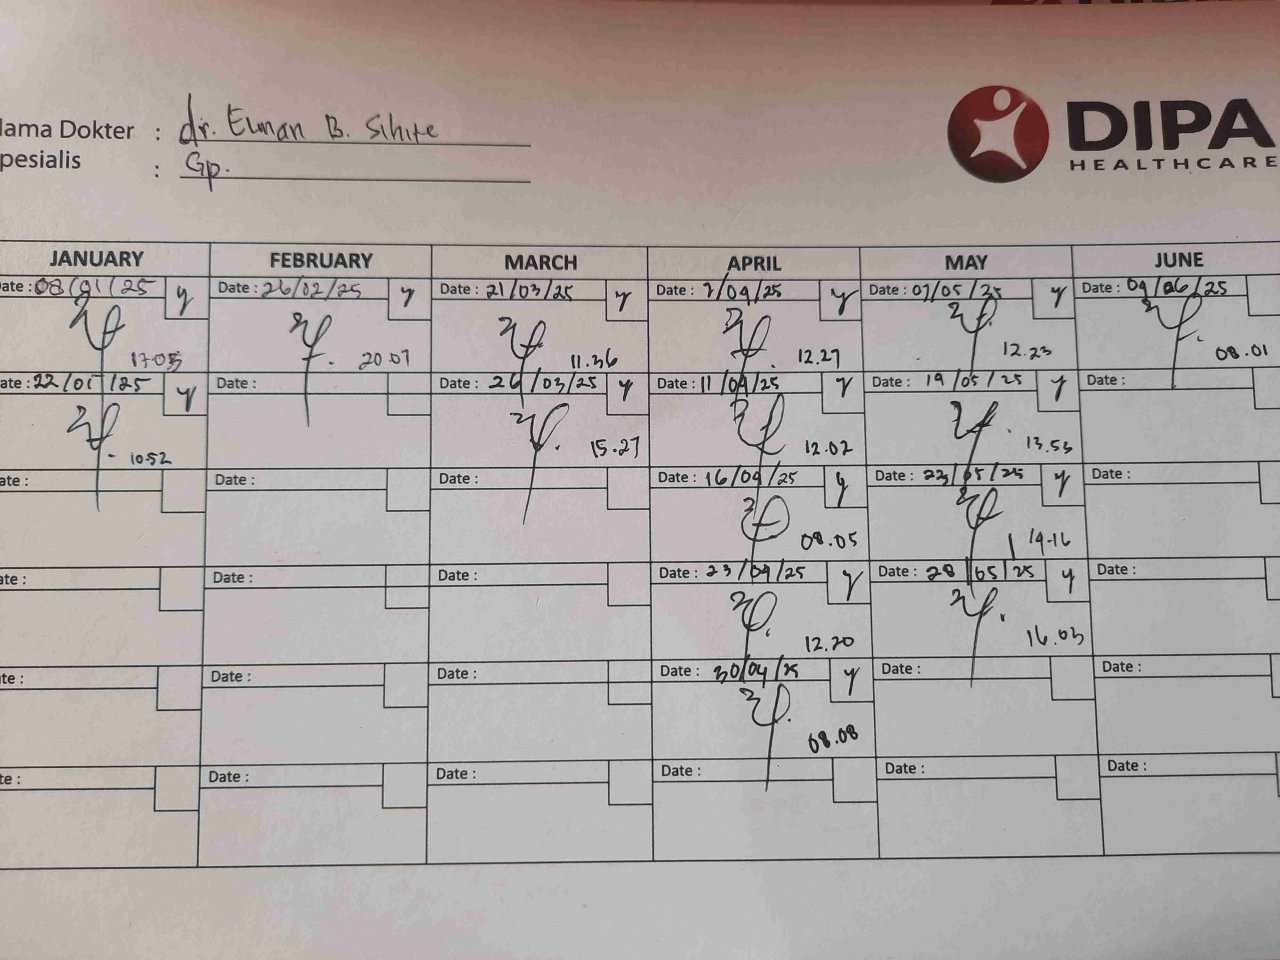 lama Dokter : dr. Elman B. Sihite
pesialis : Gp.
DIPA
HEALTHCARE
JANUARY FEBRUARY MARCH APRIL MAY JUNE
ate : 08/01/25 y Date : 26/02/25 y Date : 21/03/25 y Date : 2/04/25 y Date : 07/05/25 y Date : 04/06/25
17.05 20.07 11.36 12.27 12.23 08.01
ate : 22/01/25 y Date : Date : 26/03/25 y Date : 11/04/25 y Date : 19/05/25 y Date :
10.52 15.27 12.02 13.53
ate : Date : Date : Date : 16/04/25 y Date : 22/05/25 y Date :
08.05 14.16
ate : Date : Date : Date : 23/04/25 y Date : 28/05/25 y Date :
12.20 16.03
te : Date : Date : Date : 30/04/25 y Date : Date :
08.08
te : Date : Date : Date : Date : Date :